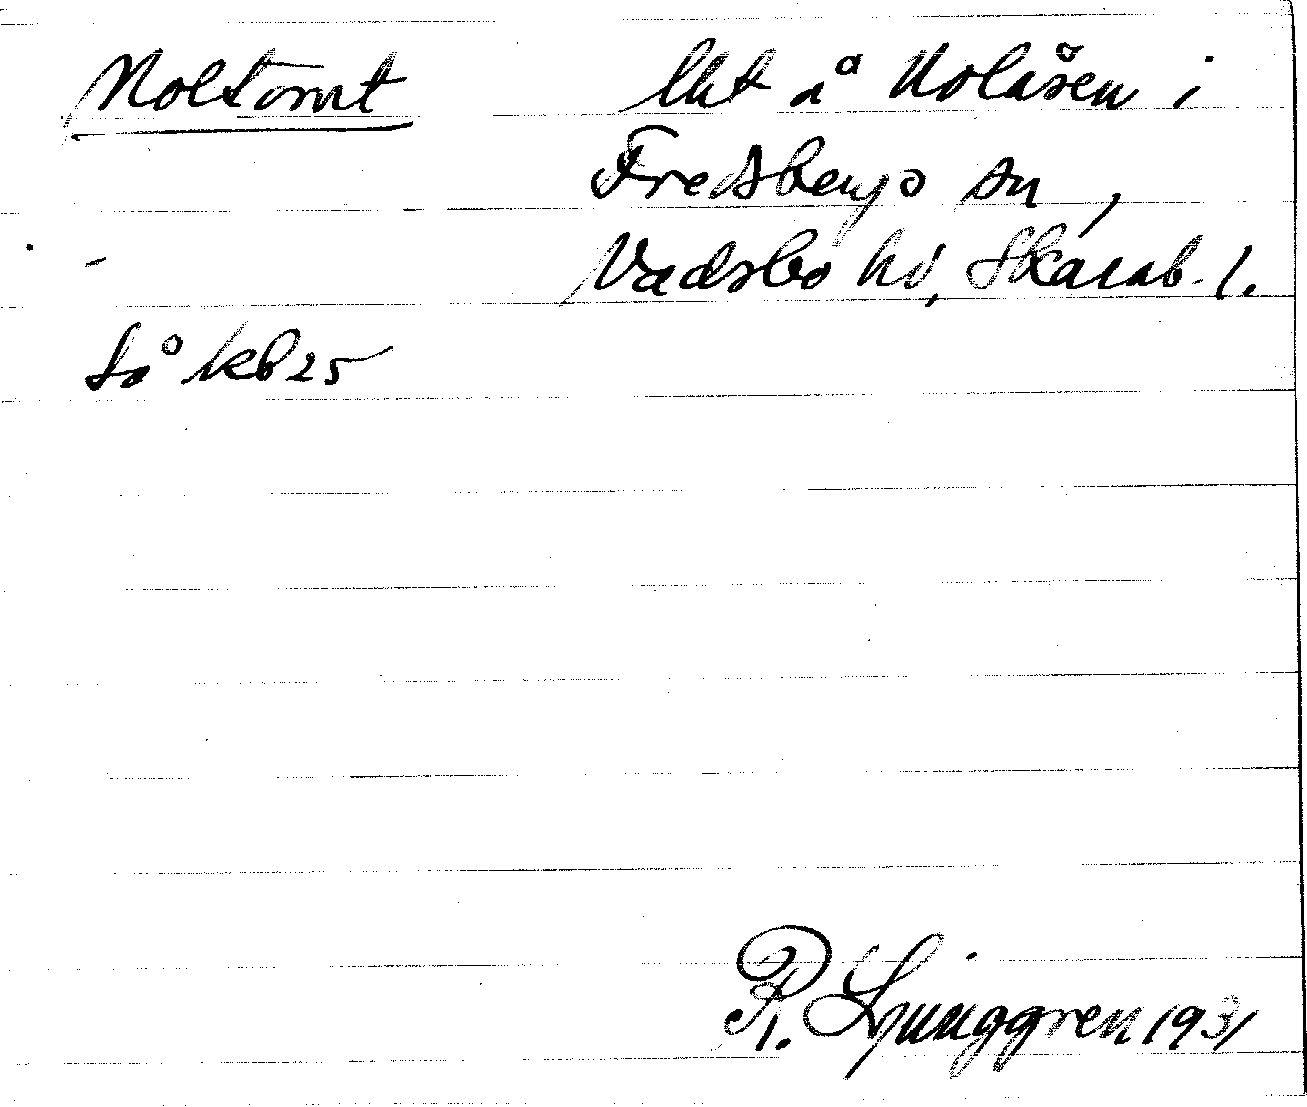 Noltomt
Lht å Kolåsen i
Fredsbergs sn,
Vadsbo hd, Skarab. l.
-
Så kb 25
R. Ljunggren 1931